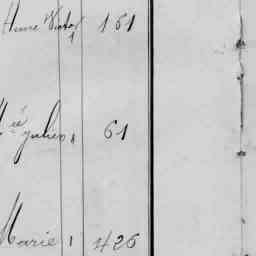 Anne Victor 1 151
Julien 8 61
Marie 1 426